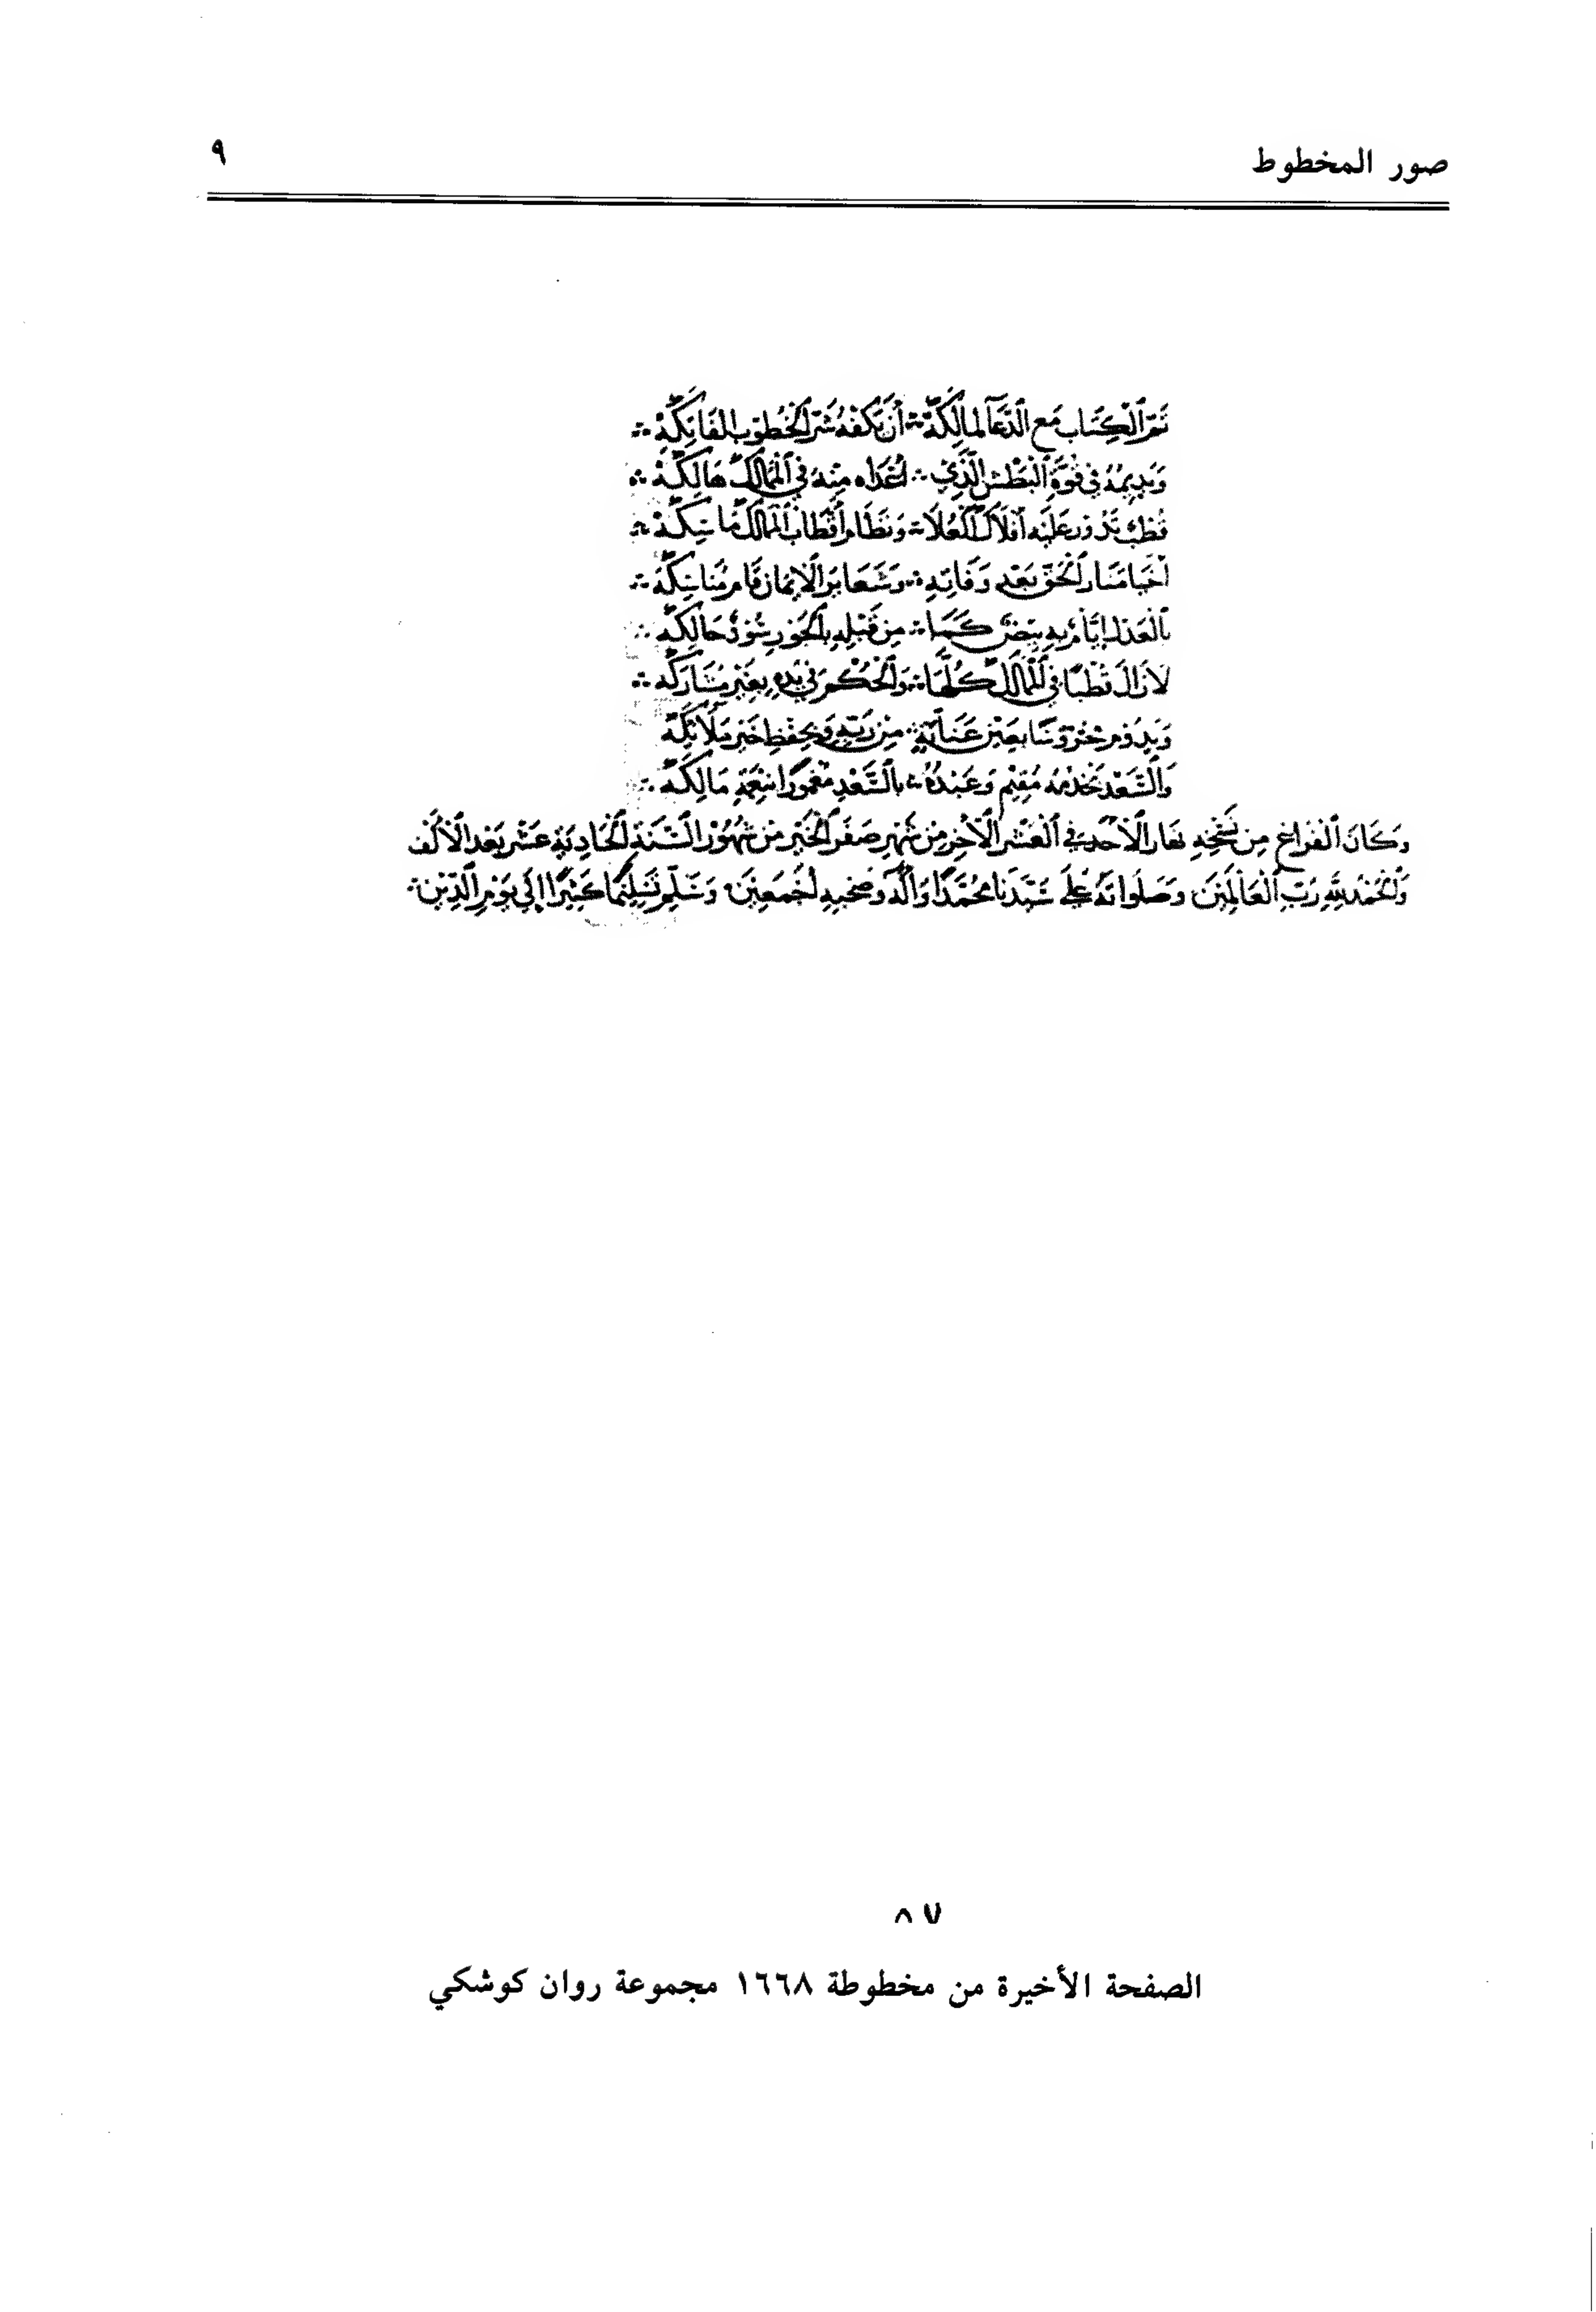 صور المخطوط
٩
تَمَّ الْكِتَاب مَع الدُّعَا لمالِكَهْ أنْ تكفهُ شرّ الخُطوب الفَاتِكَهْ
وَيديمُهُ في قُوَّةِ الْبَطْشِ الَّذي أعْدَاه مِنهُ في الْمَمَالك هَالِكَهْ
قُطبٌ تَدُور عَلَيْه أفلَاك الْعُلَا وَنظَام أقْطاب الْمَمالك مَاسِكَهْ
أَحْيَا مَنار الْحَق بَعْد وَفَاتِهِ وَشَعَاير الْإيمَان قَام مَناسِكَهْ
بالْعَدْل أيَّامٌ بهِ بِيضٌ كَمَا مِن قَبْلِهِ بِالْجَور سُودٌ حَالِكَهْ
لَا زَالَ قُطْبًا في الْمَمَالك كُلّهَا وَالْحُكْم في يَدهِ بِغَيْر مُشَارَكَه
وَيدُوم مَحْرُوسًا بعَيْن عنَايةٍ مِنْ رَبّهِ وَبِحفْظِ خَيْر مَلَائِكَهْ
وَالسَّعْد يَخْدُمهُ مُقِيْم وَعَبْدُهُ بِالسَّعْدِ مَغْمُورًا بنِعْمَةِ مَالِكَهْ
وَكَانَ الْفَرَاغ مِن نَسْخِهِ نهَار الْأحد في الْعَشْر الْأخِر مِنْ شَهْرِ صَفَر الْخَيْر مِنْ شُهُوْر السَّنَة الْحَادِيَةِ عَشْر بَعْد الْألْف
وَالْحَمْدُ لِلّهِ رَبّ الْعَالَمِيْن وَصَلَواتهُ عَلَى سَيّدنَا مُحَمَّد وَآلِه وَصَحْبِهِ أجْمَعِيْن وَسَلّم تَسْلِيْمًا كَثِيْرًا إلى يَوْمِ الدِّيْن
٨٧
الصفحة الأخيرة من مخطوطة ١٦٦٨ مجموعة روان كوشكي